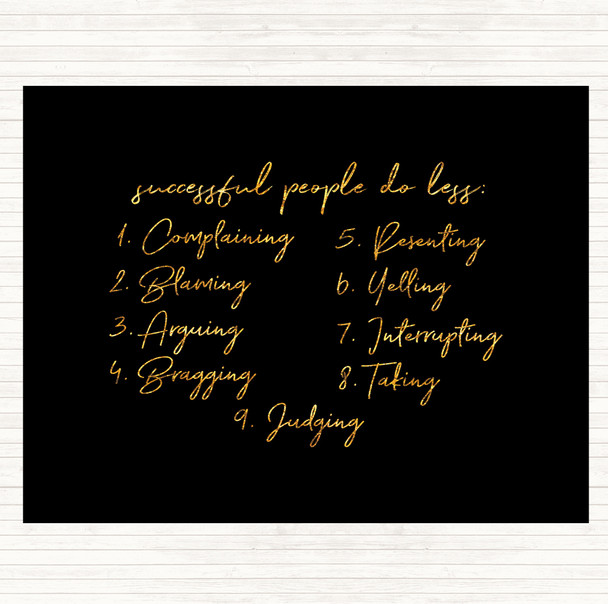 successful people do less:
1. Complaining
2. Blaming
3. Arguing
4. Bragging
5. Resenting
6. Yelling
7. Interrupting
8. Taking
9. Judging